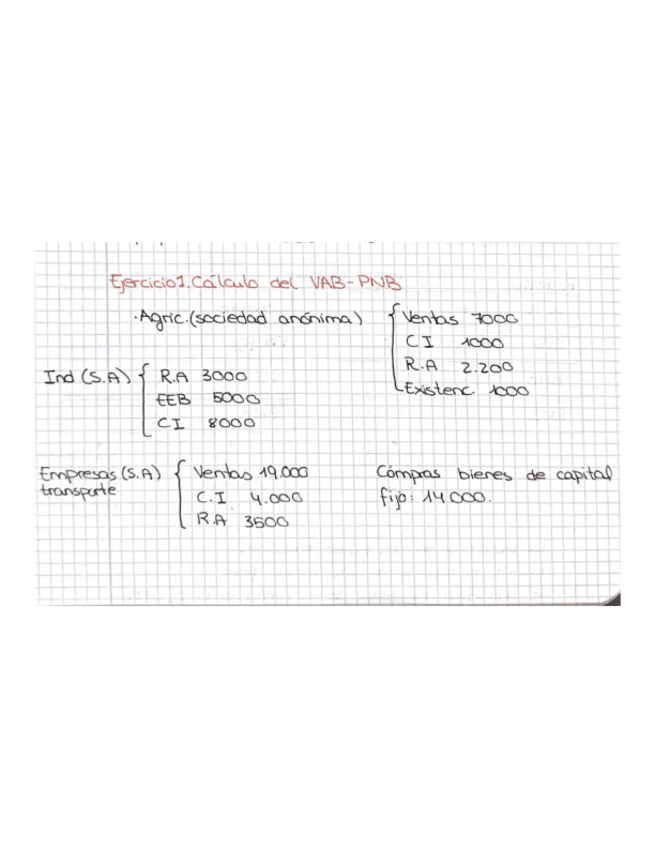 Ejercicio1. Cálculo del VAB-PNB
·Agric.(sociedad anónima) { Ventas 7000
CI 1000
R.A 2.200
Existenc. 1000
Ind (S.A) { R.A 3000
EEB 5000
CI 8000
Empresas (S.A) transporte { Ventas 19.000
C.I 4.000
R.A 3500
Cómpras bienes de capital
fijo: 14000.